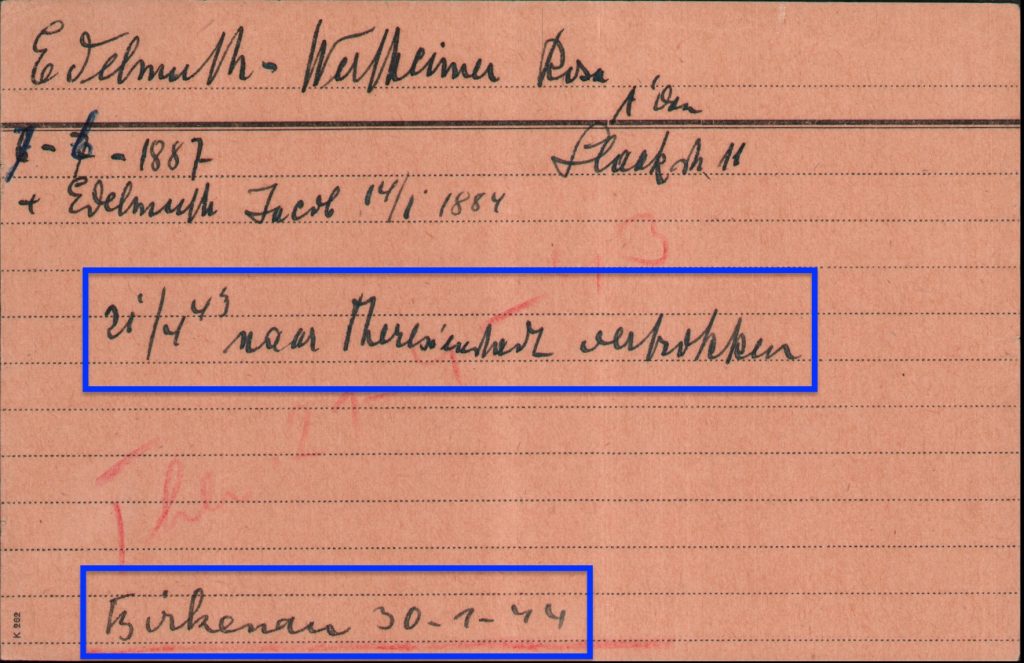 Edelmuth - Wertheimer Rosa
A'dam
7 - 6 - 1887 Slaakstr. 11
+ Edelmuth Jacob 14/1 1884
21/4 43 naar Theresienstadt vertrokken
Ther 21-4-43
Birkenau 30-1-44
K 262